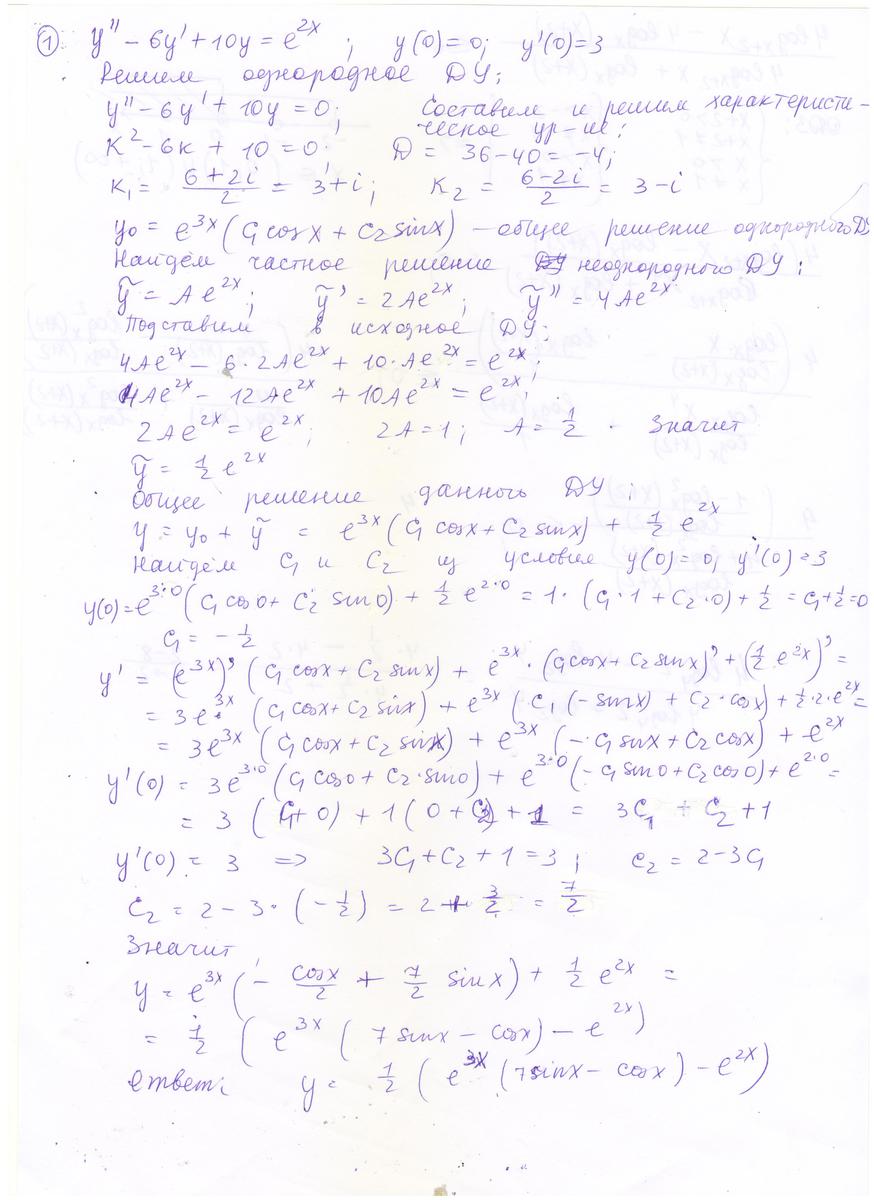 ① y'' − 6y' + 10y = e^{2x} ; y(0)=0; y'(0)=3
Решим однородное ДУ:
y'' − 6y' + 10y = 0; Составим и решим характеристи-
ческое ур-ие:
k² − 6k + 10 = 0 D = 36−40 = −4;
k₁ = (6+2i)/2 = 3+i; k₂ = (6−2i)/2 = 3−i
y₀ = e^{3x} (C₁ cosx + C₂ sinx) — общее решение однородного ДУ
Найдём частное решение неоднородного ДУ:
ỹ = Ae^{2x}; ỹ' = 2Ae^{2x}; ỹ'' = 4Ae^{2x}
Подставим в исходное ДУ:
4Ae^{2x} − 6·2Ae^{2x} + 10·Ae^{2x} = e^{2x};
4Ae^{2x} − 12Ae^{2x} + 10Ae^{2x} = e^{2x};
2Ae^{2x} = e^{2x}; 2A=1; A = 1/2 . Значит
ỹ = 1/2 e^{2x}
Общее решение данного ДУ:
y = y₀ + ỹ = e^{3x} (C₁ cosx + C₂ sinx) + 1/2 e^{2x}
Найдём C₁ и C₂ из условия y(0)=0; y'(0)=3
y(0) = e^{3·0} (C₁ cos0 + C₂ sin0) + 1/2 e^{2·0} = 1·(C₁·1 + C₂·0) + 1/2 = C₁ + 1/2 = 0
C₁ = −1/2
y' = (e^{3x})' (C₁ cosx + C₂ sinx) + e^{3x}·(C₁ cosx + C₂ sinx)' + (1/2 e^{2x})' =
= 3e^{3x} (C₁ cosx + C₂ sinx) + e^{3x} (C₁(−sinx) + C₂·cosx) + 1/2·2·e^{2x} =
= 3e^{3x} (C₁ cosx + C₂ sinx) + e^{3x} (−C₁ sinx + C₂ cosx) + e^{2x}
y'(0) = 3e^{3·0} (C₁ cos0 + C₂·sin0) + e^{3·0} (−C₁ sin0 + C₂ cos0) + e^{2·0} =
= 3 (C₁ + 0) + 1 (0 + C₂) + 1 = 3C₁ + C₂ + 1
y'(0) = 3 => 3C₁ + C₂ + 1 = 3; C₂ = 2 − 3C₁
C₂ = 2 − 3·(−1/2) = 2 + 3/2 = 7/2
Значит
y = e^{3x} (− cosx/2 + 7/2 sinx) + 1/2 e^{2x} =
= 1/2 (e^{3x} (7sinx − cosx) − e^{2x})
Ответ: y = 1/2 (e^{3x} (7sinx − cosx) − e^{2x})